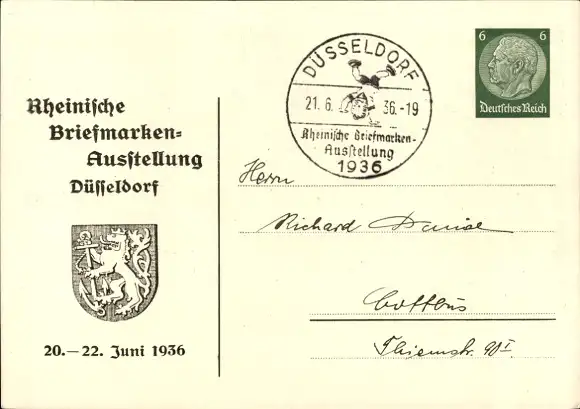 Rheinische
Briefmarken-
Ausstellung
Düsseldorf
20.—22. Juni 1936
DÜSSELDORF
21.6. 36.-19
Rheinische Briefmarken-
Ausstellung
1936
6 6
Deutsches Reich
Herrn
Richard
Cottbus
Thiemstr.